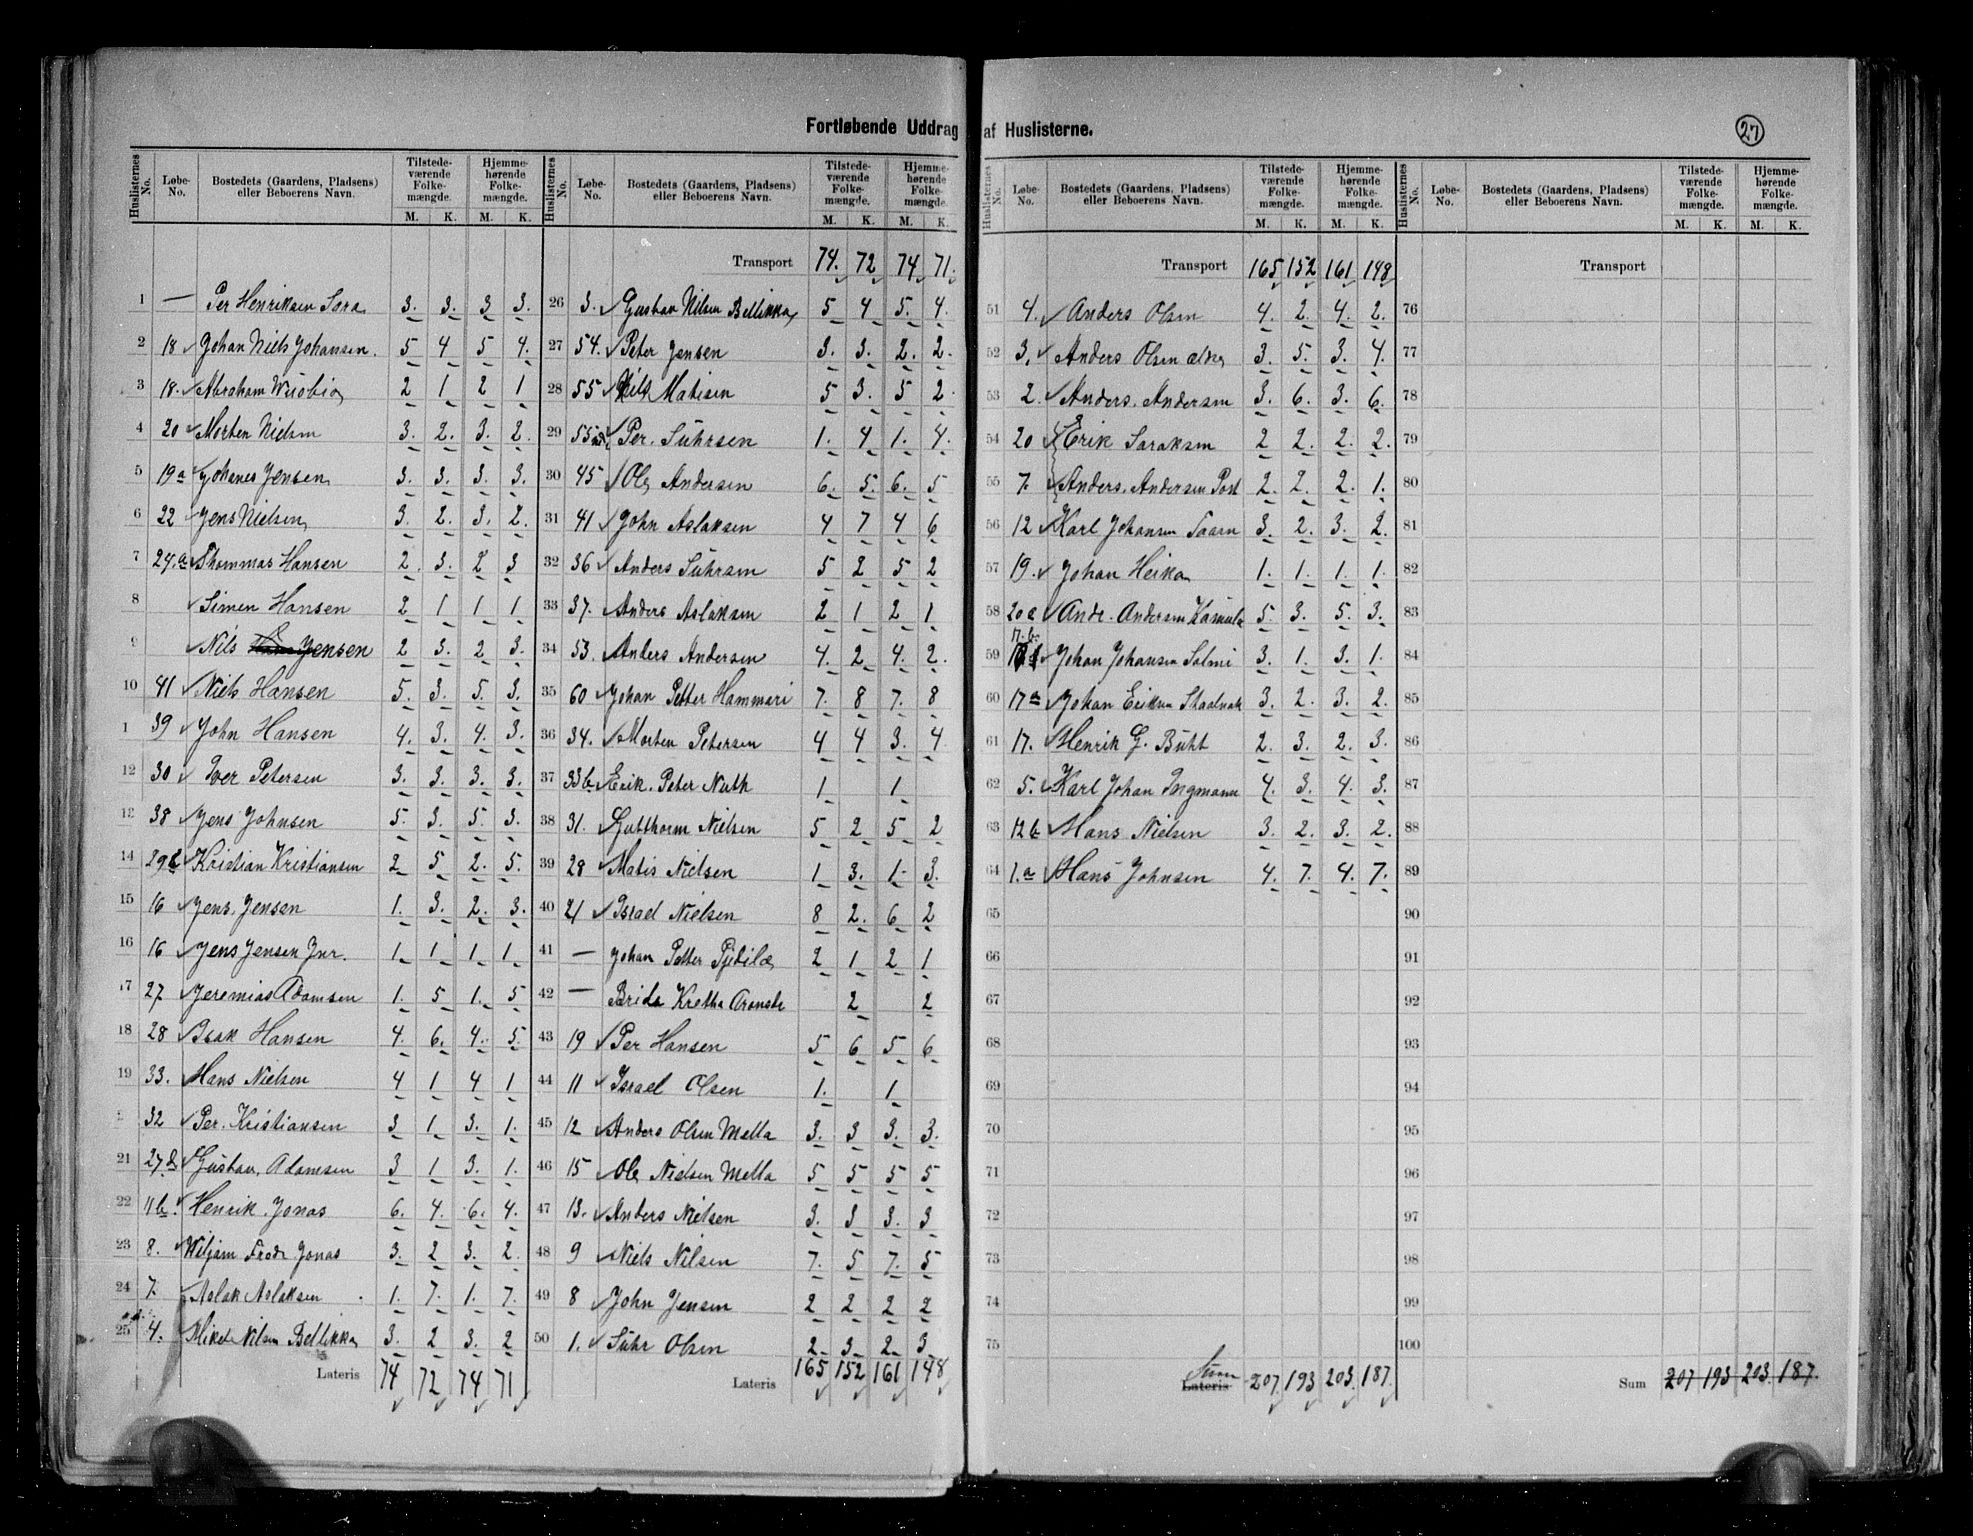 Fortløbende Uddrag af Huslisterne.
27
Huslisternes No. Løbe-No. Bostedets (Gaardens, Pladsens) eller Beboerens Navn. Tilstede-værende Folke-mængde. M. K. Hjemme-hørende Folke-mængde. M. K.
1 — Per Henriksen Sara 3. 3. 3 3.
2 18 Johan Niels Johansen. 5 4 5 4.
3 18. Abraham 2 1 2 1
4 20 Morten Nielsen 3. 2. 3. 2.
5 19a Johanes Jensen 3. 3. 3. 3.
6 22 Jens Nielsen 3. 2. 3. 2.
7 24.a Thommas Hansen 2. 3. 2 3
8 Simen Hansen 2 1 1 1
9 Nils Jensen 2 3. 2 3.
10 41 Niels Hansen 5. 3. 5. 3.
1 39 John Hansen 4. 3. 4. 3.
12 30 Iver Petersen 3. 3. 3. 3.
13 38 Jens Johnsen 5. 3. 5. 3.
14 Kristian Kristiansen 2 5 2. 5.
15 16 Jens. Jensen 1. 3. 2. 3.
16 16 Jens Jensen Jnr. 1 1 1 1
17 27 Jeremias Adamsen 1. 5 1. 5
18 28 Isak Hansen 4. 6. 4. 5.
19 33. Hans Nielsen 4 1 4 1
32 Per. Kristiansen 3 1 3. 1.
21 27b Gustav. Adamsen 3 1 3. 1.
22 Henrik. Jonas 6. 4. 6. 4.
23 8. Wiljam Fredr Jonas 3. 2 3. 2.
24 7. Aslak Aslaksen 1. 7. 1. 7.
25 4. Mikel Nilsen Bellikka 3. 2 3. 2
Lateris 74 72 74 71
Huslisternes No. Løbe-No. Bostedets (Gaardens, Pladsens) eller Beboerens Navn. Tilstede-værende Folke-mængde. M. K. Hjemme-hørende Folke-mængde. M. K.
Transport 74. 72 74 71.
26 3. Gustav Nilsen Bellikka 5 4 5. 4.
27 54. Peter Jensen 3. 3. 2. 2.
28 55 Nils Matisen 5 3. 5 2.
29 Per. Suhrsen 1. 4 1. 4.
30 45 Ole Andersen 6. 5. 6. 5
31 41 John Aslaksen 4 7 4 6
32 36 Anders Suhrsen 5 2 5 2
33 37. Anders Aslaksen 2 1 2 1
34 53. Anders Andersen 4. 2 4. 2.
35 60 Johan Petter Hammari 7. 8 7. 8
36 34. Morten Petersen 4 4 3. 4
37 33b Erik. Peter Nuth 1 1
38 31. Gutthorm Nielsen 5 2 5 2
39 28 Matis Nielsen 1 3. 1. 3.
40 21 Israel Nielsen 8 2. 6 2
41 — Johan Petter 2 1 2 1
42 — Brida Kretha 2 2
43 19 Per Hansen 5 6 5 6
44 11 Israel Olsen 1. 1
45 12 Anders Olsen Mella 3. 3 3. 3.
46 15 Ole Nielsen Mella 5 5 5 5
47 13. Anders Nielsen 3. 3 3. 3
48 9 Niels Nilsen 7. 5 7. 5
49 8 John Jensen 2 2 2 2
50 1. Suhr Olsen 2. 3 2. 3
Lateris 165 152 161 148
Huslisternes No. Løbe-No. Bostedets (Gaardens, Pladsens) eller Beboerens Navn. Tilstede-værende Folke-mængde. M. K. Hjemme-hørende Folke-mængde. M. K.
Transport 165 152 161 148
51 4. Anders Olsen 4. 2. 4. 2.
52 3. Anders Olsen ældre 3. 5. 3. 4
53 2. Anders. Andersen 3. 6. 3. 6.
54 20 Erik Saraksen 2 2. 2. 2.
55 7. Anders. Andersen Post 2. 2. 2. 1.
56 12 Karl Johansen 3. 2. 3. 2.
57 19. Johan Heika 1. 1. 1. 1.
58 Andr. Andersen 5. 3. 5. 3.
59 17.b. Johan Johansen Salmi 3. 1. 3. 1.
60 17a Johan Eriksen 3. 2. 3. 2.
61 17. Henrik G. Buht 2. 3. 2. 3.
62 5. Karl Johan Ingmann 4. 3. 4. 3.
63 12b Hans. Nielsen 3. 2. 3. 2.
64 1.a Hans Johnsen 4. 7. 4. 7.
65
66
67
68
69
70
71
72
73
74
75
Sum Lateris 207 193 203. 187.
Huslisternes No. Løbe-No. Bostedets (Gaardens, Pladsens) eller Beboerens Navn. Tilstede-værende Folke-mængde. M. K. Hjemme-hørende Folke-mængde. M. K.
Transport
76
77
78
79
80
81
82
83
84
85
86
87
88
89
90
91
92
93
94
95
96
97
98
99
100
Sum 207 193 203. 187.